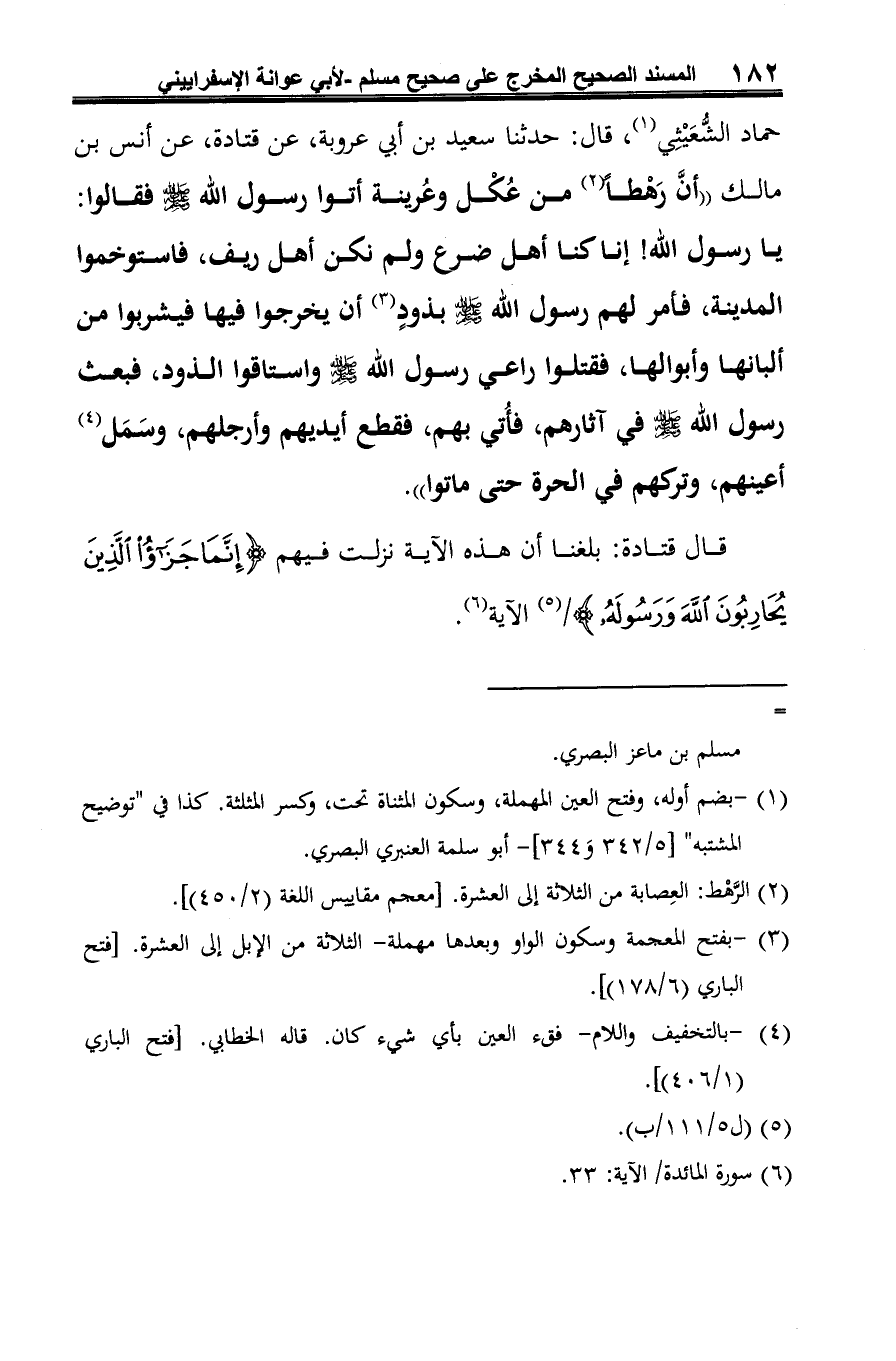 ١٨٢ المسند الصحيح المخرج على صحيح مسلم -لأبي عوانة الإسفراييني
حماد الشُّعَيْثِي(١)، قال: حدثنا سعيد بن أبي عروبة، عن قتادة، عن أنس بن
مالك ((أنَّ رَهْطاً(٢) من عُكْل وعُرينة أتوا رسول الله ﷺ فقالوا:
يا رسول الله! إنا كنا أهل ضرع ولم نكن أهل ريف، فاستوخموا
المدينة، فأمر لهم رسول الله ﷺ بذودٍ(٣) أن يخرجوا فيها فيشربوا من
ألبانها وأبوالها، فقتلوا راعي رسول الله ﷺ واستاقوا الذود، فبعث
رسول الله ﷺ في آثارهم، فأُتي بهم، فقطع أيديهم وأرجلهم، وسَمَل(٤)
أعينهم، وتركهم في الحرة حتى ماتوا)).
قال قتادة: بلغنا أن هذه الآية نزلت فيهم ﴿إِنَّمَا جَزَٰٓؤُا۟ ٱلَّذِينَ
يُحَارِبُونَ ٱللَّهَ وَرَسُولَهُۥ﴾/(٥) الآية(٦).
=
مسلم بن ماعز البصري.
(١) -بضم أوله، وفتح العين المهملة، وسكون المثناة تحت، وكسر المثلثة. كذا في "توضيح
المشتبه" [٣٤٢/٥ وَ٣٤٤]- أبو سلمة العنبري البصري.
(٢) الرَّهْط: العِصابة من الثلاثة إلى العشرة. [معجم مقاييس اللغة (٤٥٠/٢)].
(٣) -بفتح المعجمة وسكون الواو وبعدها مهملة- الثلاثة من الإبل إلى العشرة. [فتح
الباري (١٧٨/٦)].
(٤) -بالتخفيف واللام- فقء العين بأي شيء كان. قاله الخطابي. [فتح الباري
(٤٠٦/١)].
(٥) (ل١١١/٥/ب).
(٦) سورة المائدة/ الآية: ٣٣.